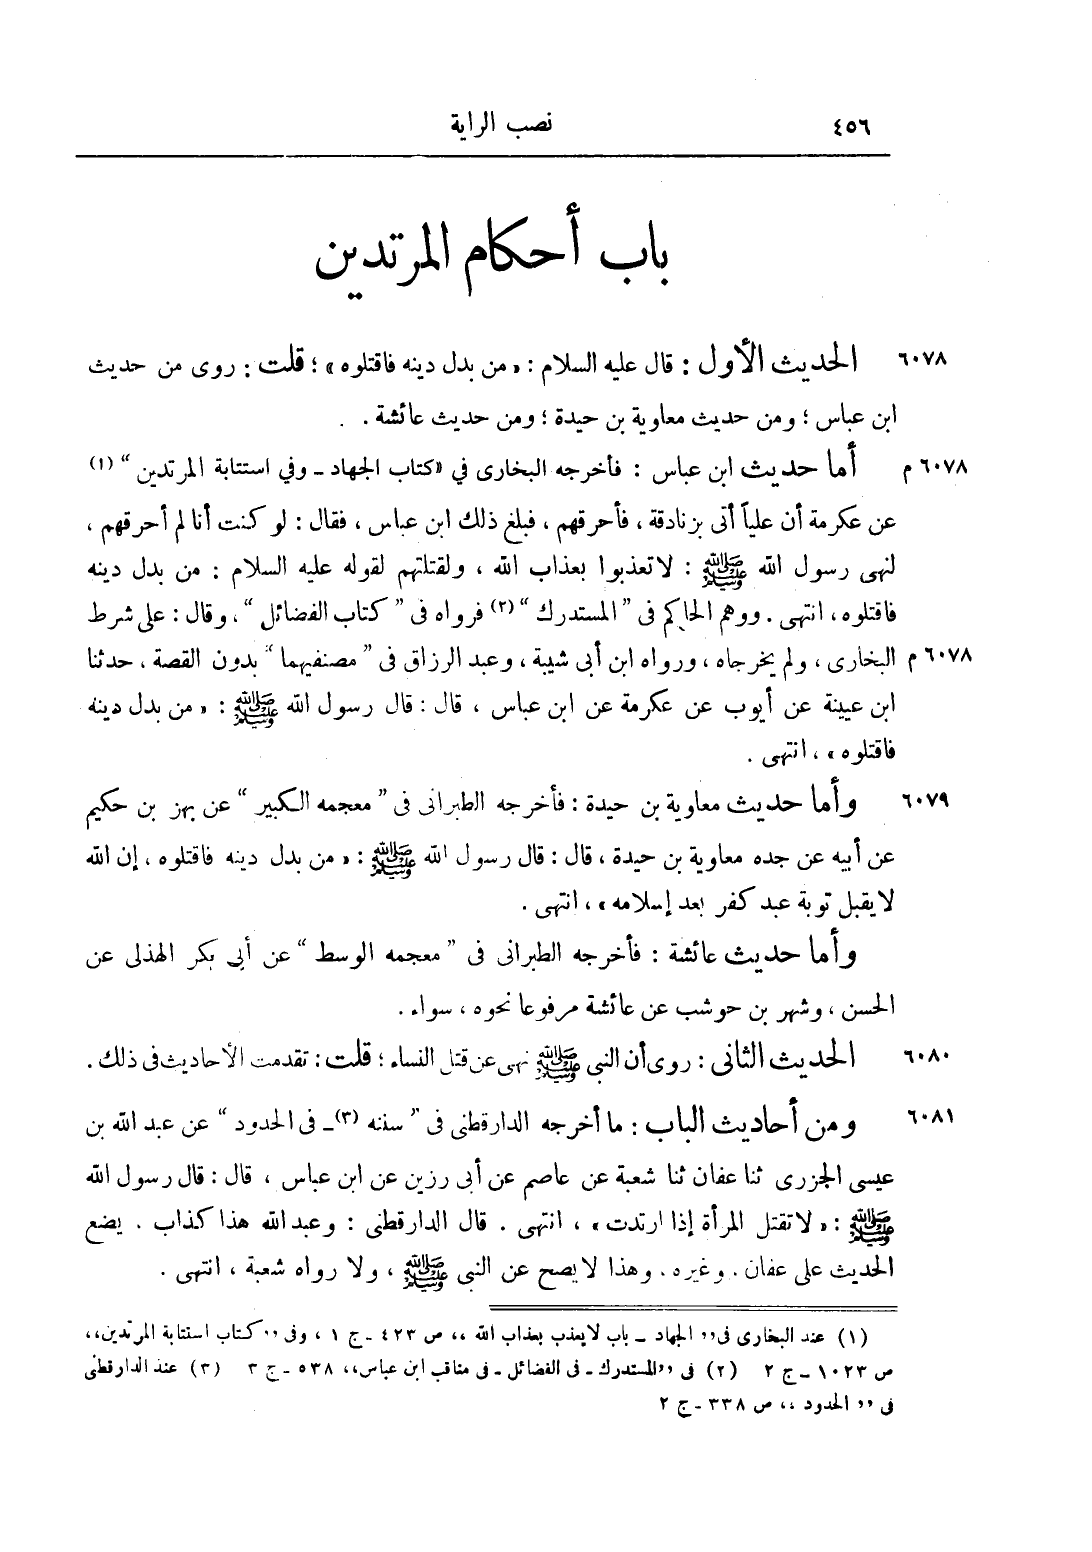 ٤٥٦ نصب الراية
باب أحكام المرتدين
٦٠٧٨ الحديث الأول : قال عليه السلام : « من بدل دينه فاقتلوه » ؛ قلت : روى من حديث
ابن عباس ؛ ومن حديث معاوية بن حيدة ؛ ومن حديث عائشة .
٦٠٧٨ م أما حديث ابن عباس : فأخرجه البخارى في «كتاب الجهاد ـ وفي استتابة المرتدين “ (١)
عن عكرمة أن علياً أتى بزنادقة ، فأحرقهم ، فبلغ ذلك ابن عباس ، فقال : لو كنت أنا لم أحرقهم ،
لنهى رسول الله ﷺ : لا تعذبوا بعذاب الله ، ولقتلتهم لقوله عليه السلام : من بدل دينه
فاقتلوه ، انتهى . ووهم الحاكم فى ” المستدرك “ (٢) فرواه فى ” كتاب الفضائل “ ، وقال : على شرط
٦٠٧٨ م البخارى ، ولم يخرجاه ، ورواه ابن أبى شيبة ، وعبد الرزاق فى ” مصنفيهما “ بدون القصة ، حدثنا
ابن عيينة عن أيوب عن عكرمة عن ابن عباس ، قال : قال رسول الله ﷺ : « من بدل دينه
فاقتلوه » ، انتهى .
٦٠٧٩ وأما حديث معاوية بن حيدة : فأخرجه الطبرانى فى ” معجمه الكبير “ عن بهز بن حكيم
عن أبيه عن جده معاوية بن حيدة ، قال : قال رسول الله ﷺ : « من بدل دينه فاقتلوه ، إن الله
لا يقبل توبة عبد كفر بعد إسلامه » ، انتهى .
وأما حديث عائشة : فأخرجه الطبرانى فى ” معجمه الوسط “ عن أبى بكر الهذلى عن
الحسن ، وشهر بن حوشب عن عائشة مرفوعا نحوه ، سواء .
٦٠٨٠ الحديث الثانى : روى أن النبى ﷺ نهى عن قتل النساء ؛ قلت : تقدمت الأحاديث فى ذلك .
٦٠٨١ ومن أحاديث الباب : ما أخرجه الدارقطنى فى ” سننه (٣) ـ فى الحدود “ عن عبد الله بن
عيسى الجزرى ثنا عفان ثنا شعبة عن عاصم عن أبى رزين عن ابن عباس ، قال : قال رسول الله
ﷺ : « لا تقتل المرأة إذا ارتدت » ، انتهى . قال الدارقطنى : وعبد الله هذا كذاب . يضع
الحديث على عفان . وغيره . وهذا لا يصح عن النبى ﷺ ، ولا رواه شعبة ، انتهى .
(١) عند البخارى فى ,, الجهاد ـ باب لا يعذب بعذاب الله ،، ص ٤٢٣ ـ ج ١ ، وفى ,, كتاب استتابة المرتدين ،،
ص ١٠٢٣ ـ ج ٢ (٢) فى ,, المستدرك ـ فى الفضائل ـ فى مناقب ابن عباس ،، ٥٣٨ ـ ج ٣ (٣) عند الدارقطنى
فى ,, الحدود ،، ص ٣٣٨ ـ ج ٢